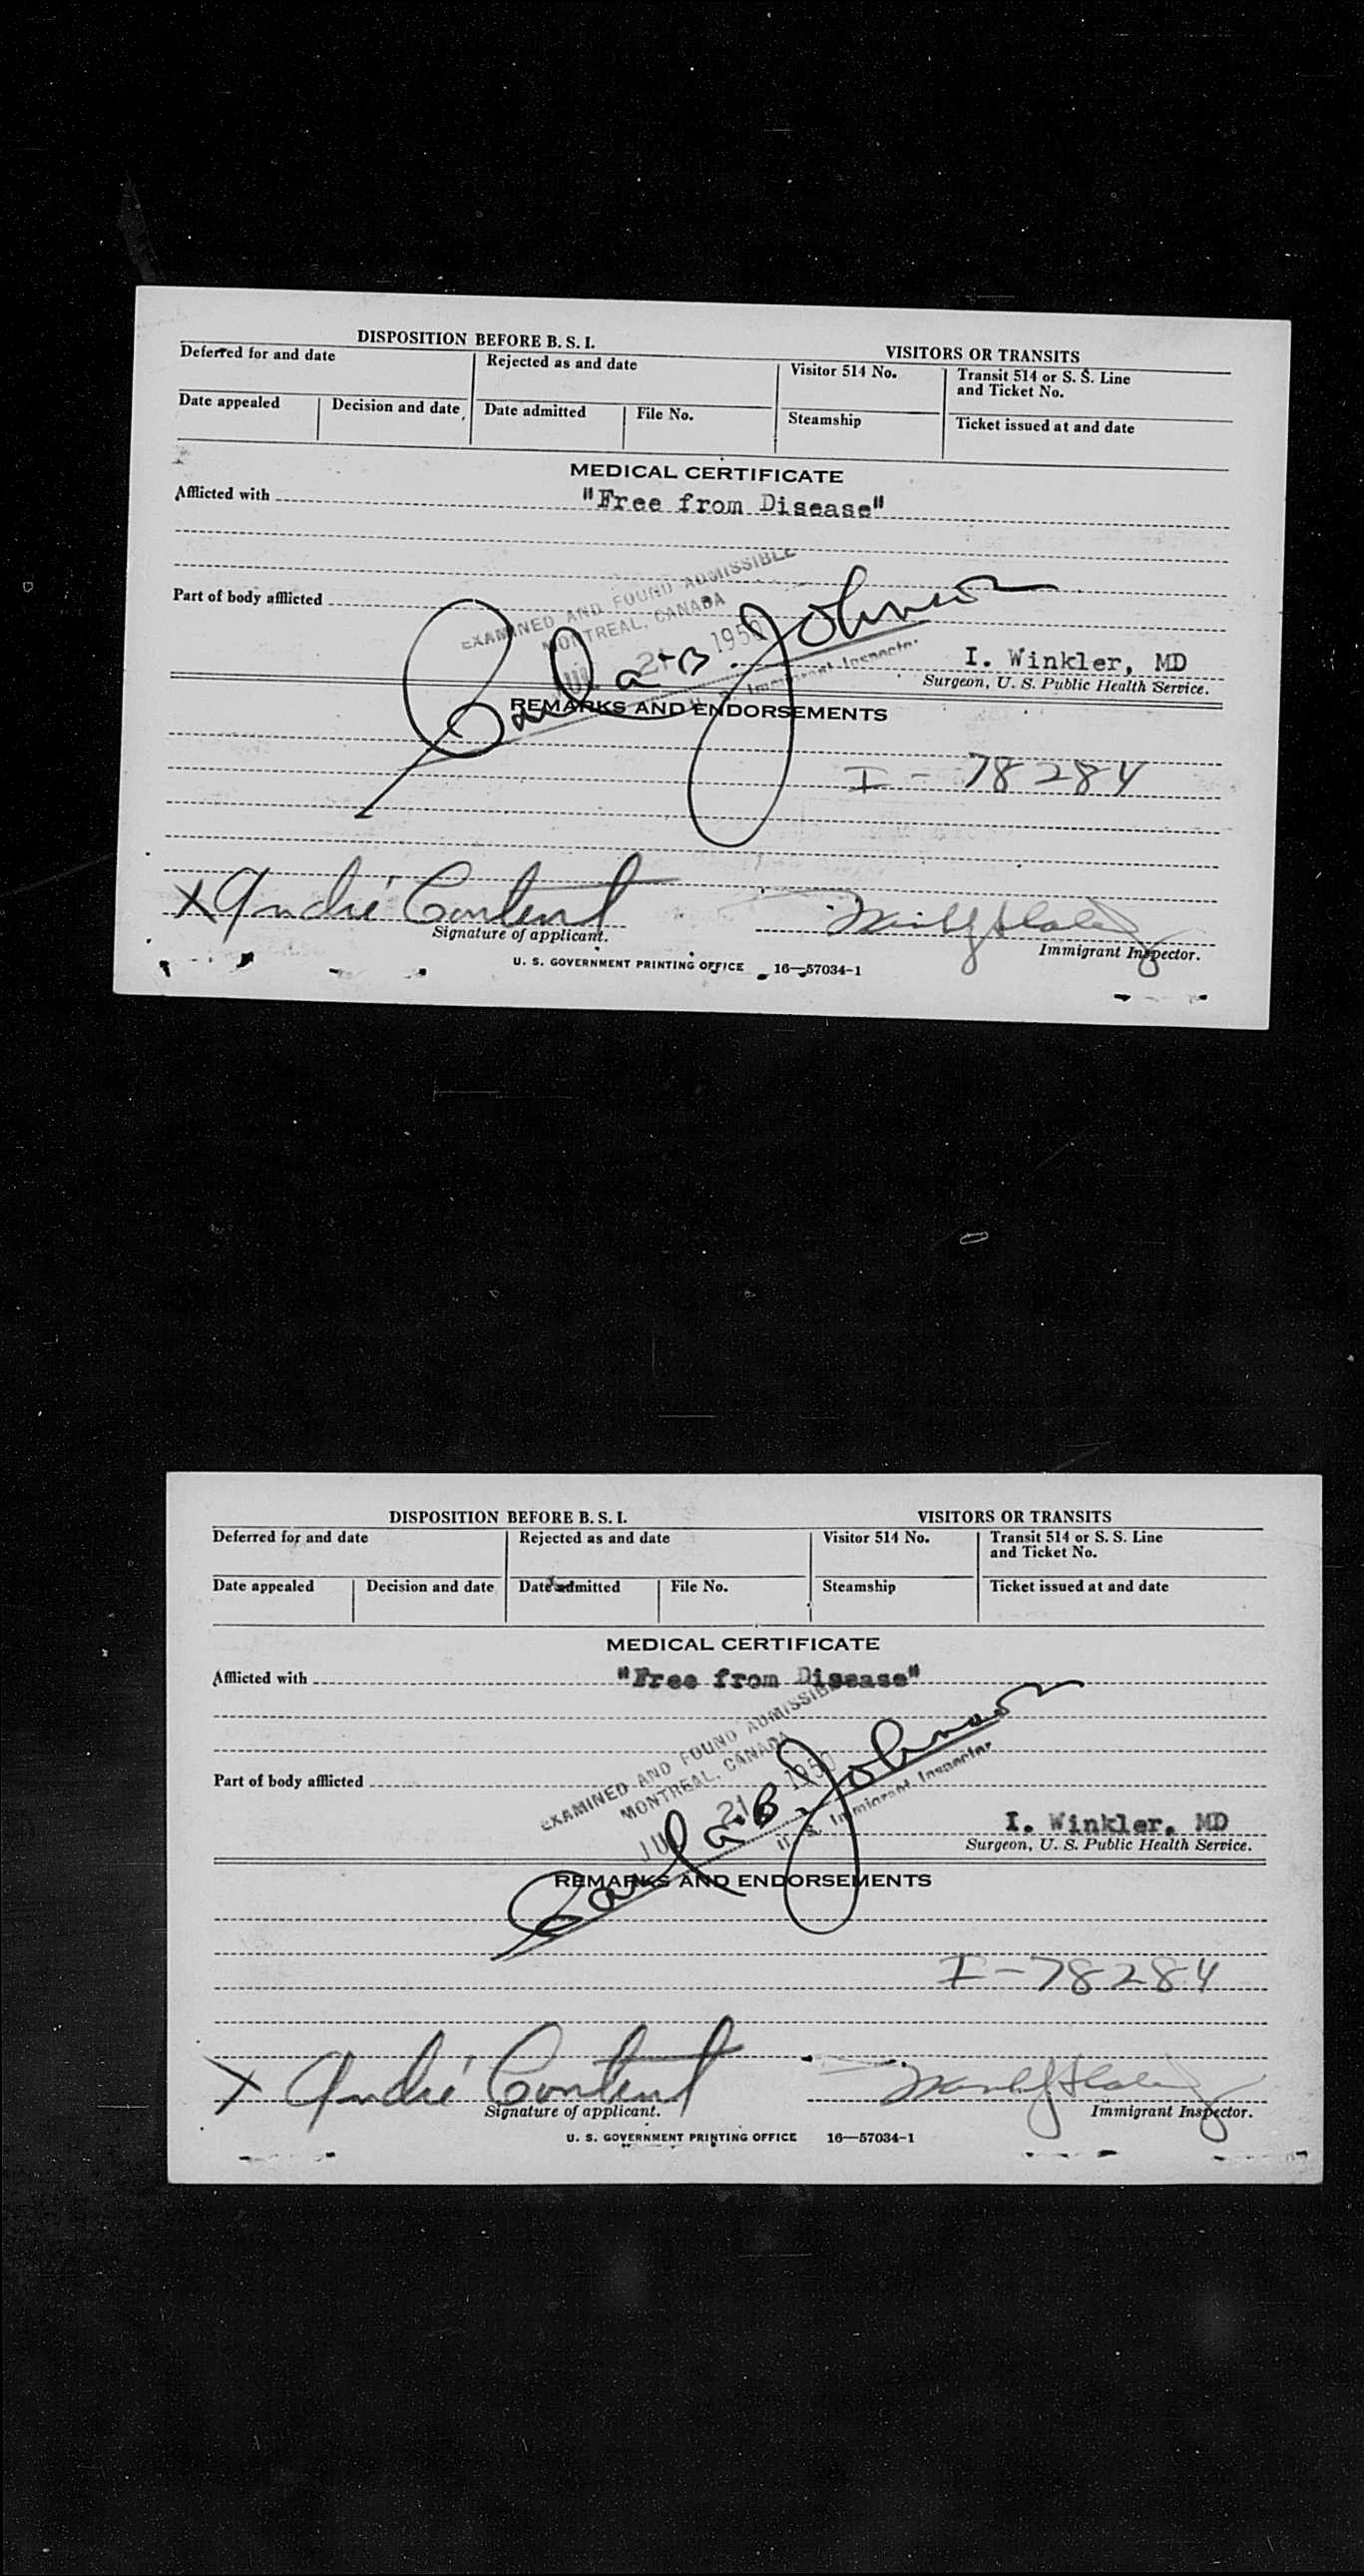 DISPOSITION BEFORE B. S. I.
VISITORS OR TRANSITS
Deferred for and date
Rejected as and date
Visitor 514 No.
Transit 514 or S. S. Line
and Ticket No.
Date appealed
Decision and date
Date admitted
File No.
Steamship
Ticket issued at and date
MEDICAL CERTIFICATE
Afflicted with "Free from Disease"
EXAMINED AND FOUND ADMISSIBLE
Part of body afflicted
MONTREAL, CANADA
21 1950
Johnson
Immigrant Inspector
I. Winkler, MD
Surgeon, U. S. Public Health Service.
REMARKS AND ENDORSEMENTS
I - 78284
X André Content
Signature of applicant.
Immigrant Inspector.
U. S. GOVERNMENT PRINTING OFFICE 16—57034-1
DISPOSITION BEFORE B. S. I.
VISITORS OR TRANSITS
Deferred for and date
Rejected as and date
Visitor 514 No.
Transit 514 or S. S. Line
and Ticket No.
Date appealed
Decision and date
Date admitted
File No.
Steamship
Ticket issued at and date
MEDICAL CERTIFICATE
Afflicted with "Free from Disease"
EXAMINED AND FOUND ADMISSIBLE
Part of body afflicted
MONTREAL, CANADA
21 1950
Johnson
U. S. Immigrant Inspector
I. Winkler, MD
Surgeon, U. S. Public Health Service.
REMARKS AND ENDORSEMENTS
I-78284
X André Content
Signature of applicant.
Immigrant Inspector.
U. S. GOVERNMENT PRINTING OFFICE 16—57034-1